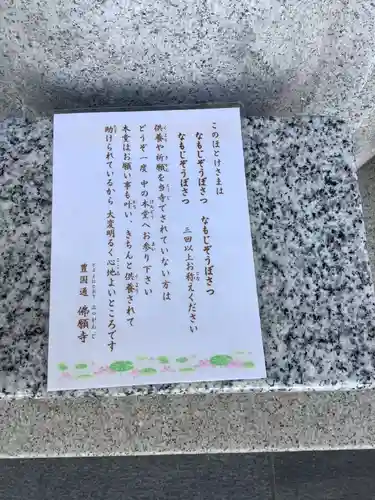 このほとけさまは
なもじぞうぼさつ　なもじぞうぼさつ
なもじぞうぼさつ　三回以上お称えください
供養や祈願を当寺でされていない方は
どうぞ一度　中の本堂へお参り下さい
本堂はお願い事も叶い、きちんと供養されて
助けられているから　大変明るく心地よいところです
豊国通　佛願寺